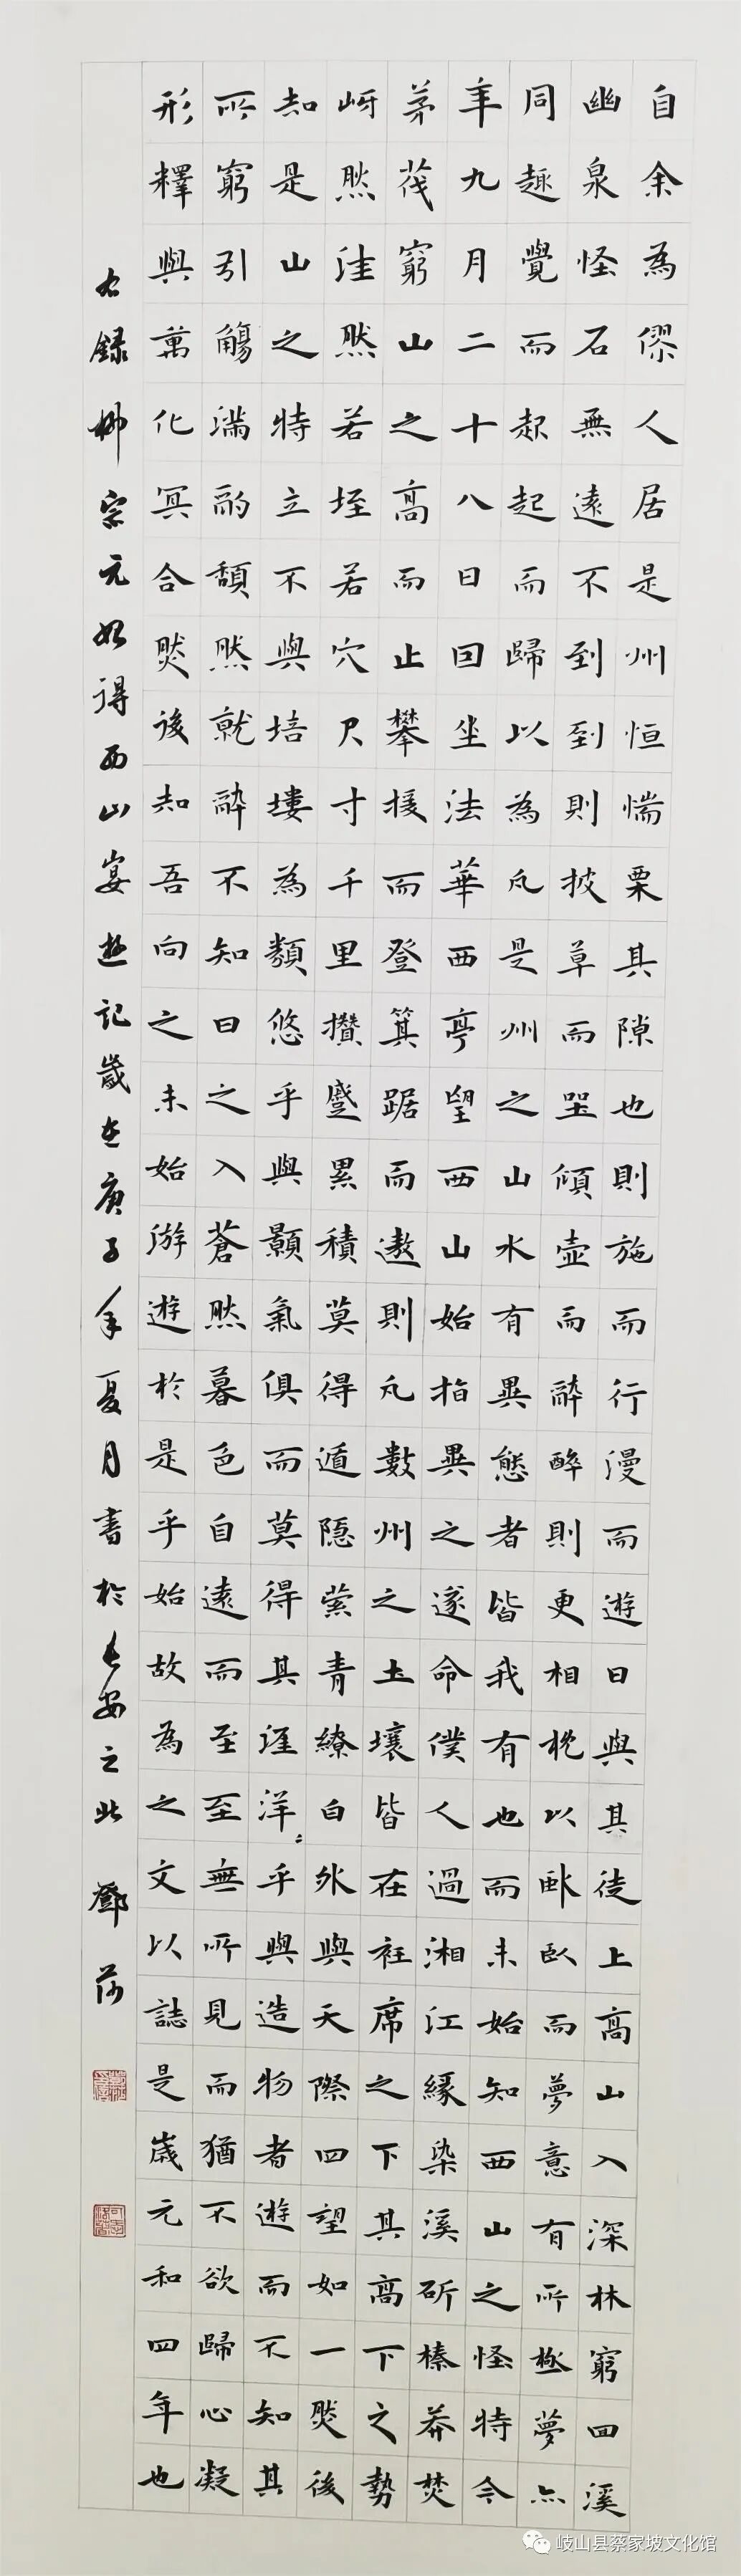 自余為僇人居是州恒惴栗其隙也則施而行漫而遊日與其徒上高山入深林窮回溪
幽泉怪石無遠不到到則披草而坐傾壺而醉醉則更相枕以臥臥而夢意有所極夢亦
同趣覺而起起而歸以為凡是州之山水有異態者皆我有也而未始知西山之怪特今
年九月二十八日因坐法華西亭望西山始指異之遂命僕人過湘江緣染溪斫榛莽焚
茅茷窮山之高而止攀援而登箕踞而遨則凡數州之土壤皆在衽席之下其高下之勢
岈然洼然若垤若穴尺寸千里攢蹙累積莫得遁隱縈青繚白外與天際四望如一然後
知是山之特立不與培塿為類悠乎與顥氣俱而莫得其涯洋〻乎與造物者遊而不知其
所窮引觴滿酌頹然就醉不知日之入蒼然暮色自遠而至至無所見而猶不欲歸心凝
形釋與萬化冥合然後知吾向之未始游遊於是乎始故為之文以誌是歲元和四年也
右錄柳宗元始得西山宴遊記歲在庚子年夏月書於長安之北 鄧莎
岐山县蔡家坡文化馆